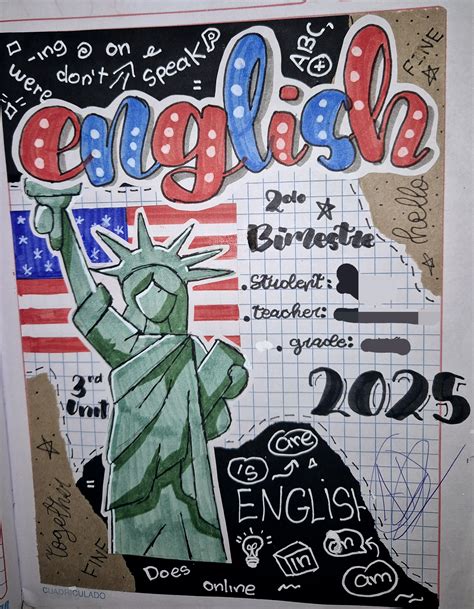 -ing @ on e
were don't speak
ABC
A+
FINE
english
hello
2do
Bimestre
. Student:
. teacher:
. grade:
2025
3rd
Unit
's are
ENGLISH
in on
am
Together
FINE
Does
online
CUADRICULADO